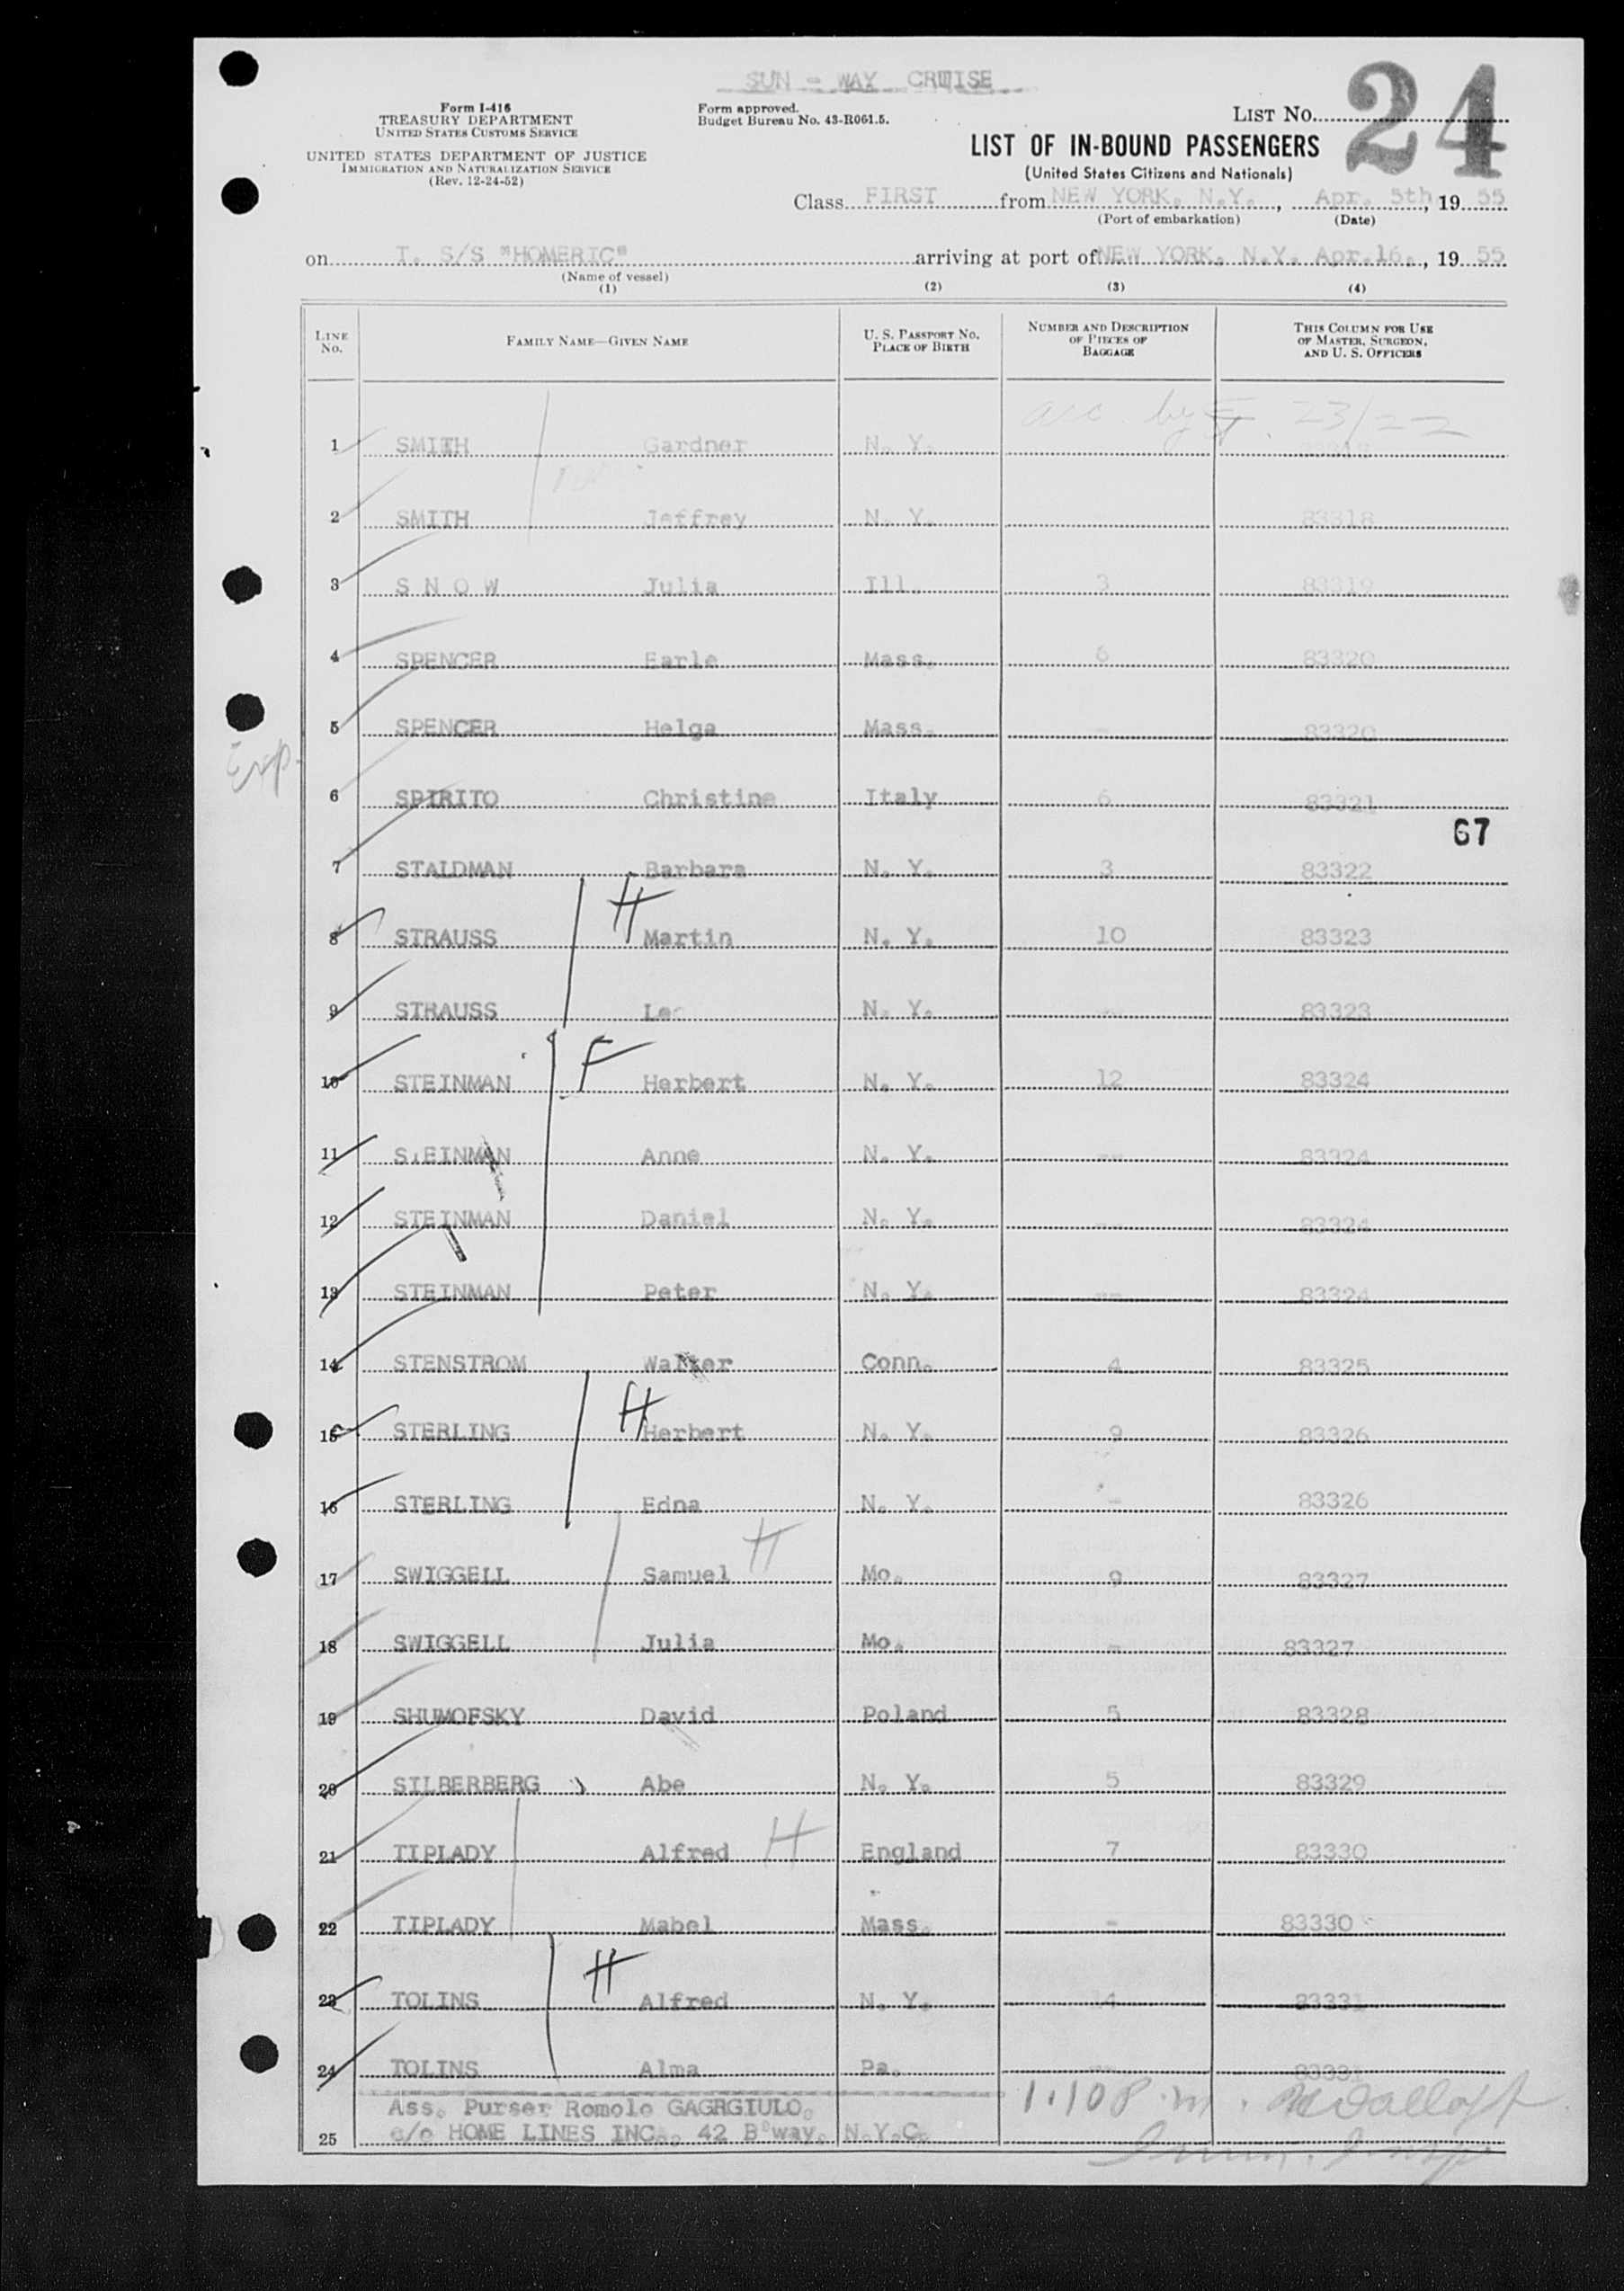 SUN - WAY CRUISE
24
Form I-416
TREASURY DEPARTMENT
UNITED STATES CUSTOMS SERVICE
UNITED STATES DEPARTMENT OF JUSTICE
IMMIGRATION AND NATURALIZATION SERVICE
(Rev. 12-24-52)
Form approved.
Budget Bureau No. 43-R061.5.
LIST NO.
LIST OF IN-BOUND PASSENGERS
(United States Citizens and Nationals)
Class FIRST from NEW YORK, N.Y., Apr. 5th, 19 55
(Port of embarkation) (Date)
on T. S/S "HOMERIC" arriving at port of NEW YORK, N.Y. Apr.16., 19 55
(Name of vessel)
(1) (2) (3) (4)
LINE NO. FAMILY NAME—GIVEN NAME U. S. PASSPORT NO. PLACE OF BIRTH NUMBER AND DESCRIPTION OF PIECES OF BAGGAGE THIS COLUMN FOR USE OF MASTER, SURGEON, AND U. S. OFFICERS
23/22
1 SMITH Gardner N. Y.
2 SMITH Jeffrey N. Y. 83318
3 S N O W Julia Ill. 3 83319
4 SPENCER Earle Mass. 6 83320
5 SPENCER Helga Mass. - 83320
Exp.
6 SPIRITO Christine Italy 6 83321
67
7 STALDMAN Barbara N. Y. 3 83322
H
8 STRAUSS Martin N. Y. 10 83323
9 STRAUSS N. Y. -- 83323
F
10 STEINMAN Herbert N. Y. 12 83324
11 STEINMAN Anne N. Y. -- 83324
12 STEINMAN Daniel N. Y. -- 83324
13 STEINMAN Peter N. Y. -- 83324
14 STENSTROM Walter Conn. 4 83325
H
15 STERLING Herbert N. Y. 9 83326
16 STERLING Edna N. Y. - 83326
17 SWIGGELL Samuel H Mo. 9 83327
18 SWIGGELL Julia Mo. - 83327
19 SHUMOFSKY David Poland 5 83328
20 SILBERBERG Abe N. Y. 5 83329
21 TIPLADY Alfred H England 7 83330
22 TIPLADY Mabel Mass. - 83330
H
23 TOLINS Alfred N. Y. 14 83331
24 TOLINS Alma Pa. -- 83331
Ass. Purser Romolo GAGRGIULO.
25 c/o HOME LINES INC., 42 B'way. N.Y.C.